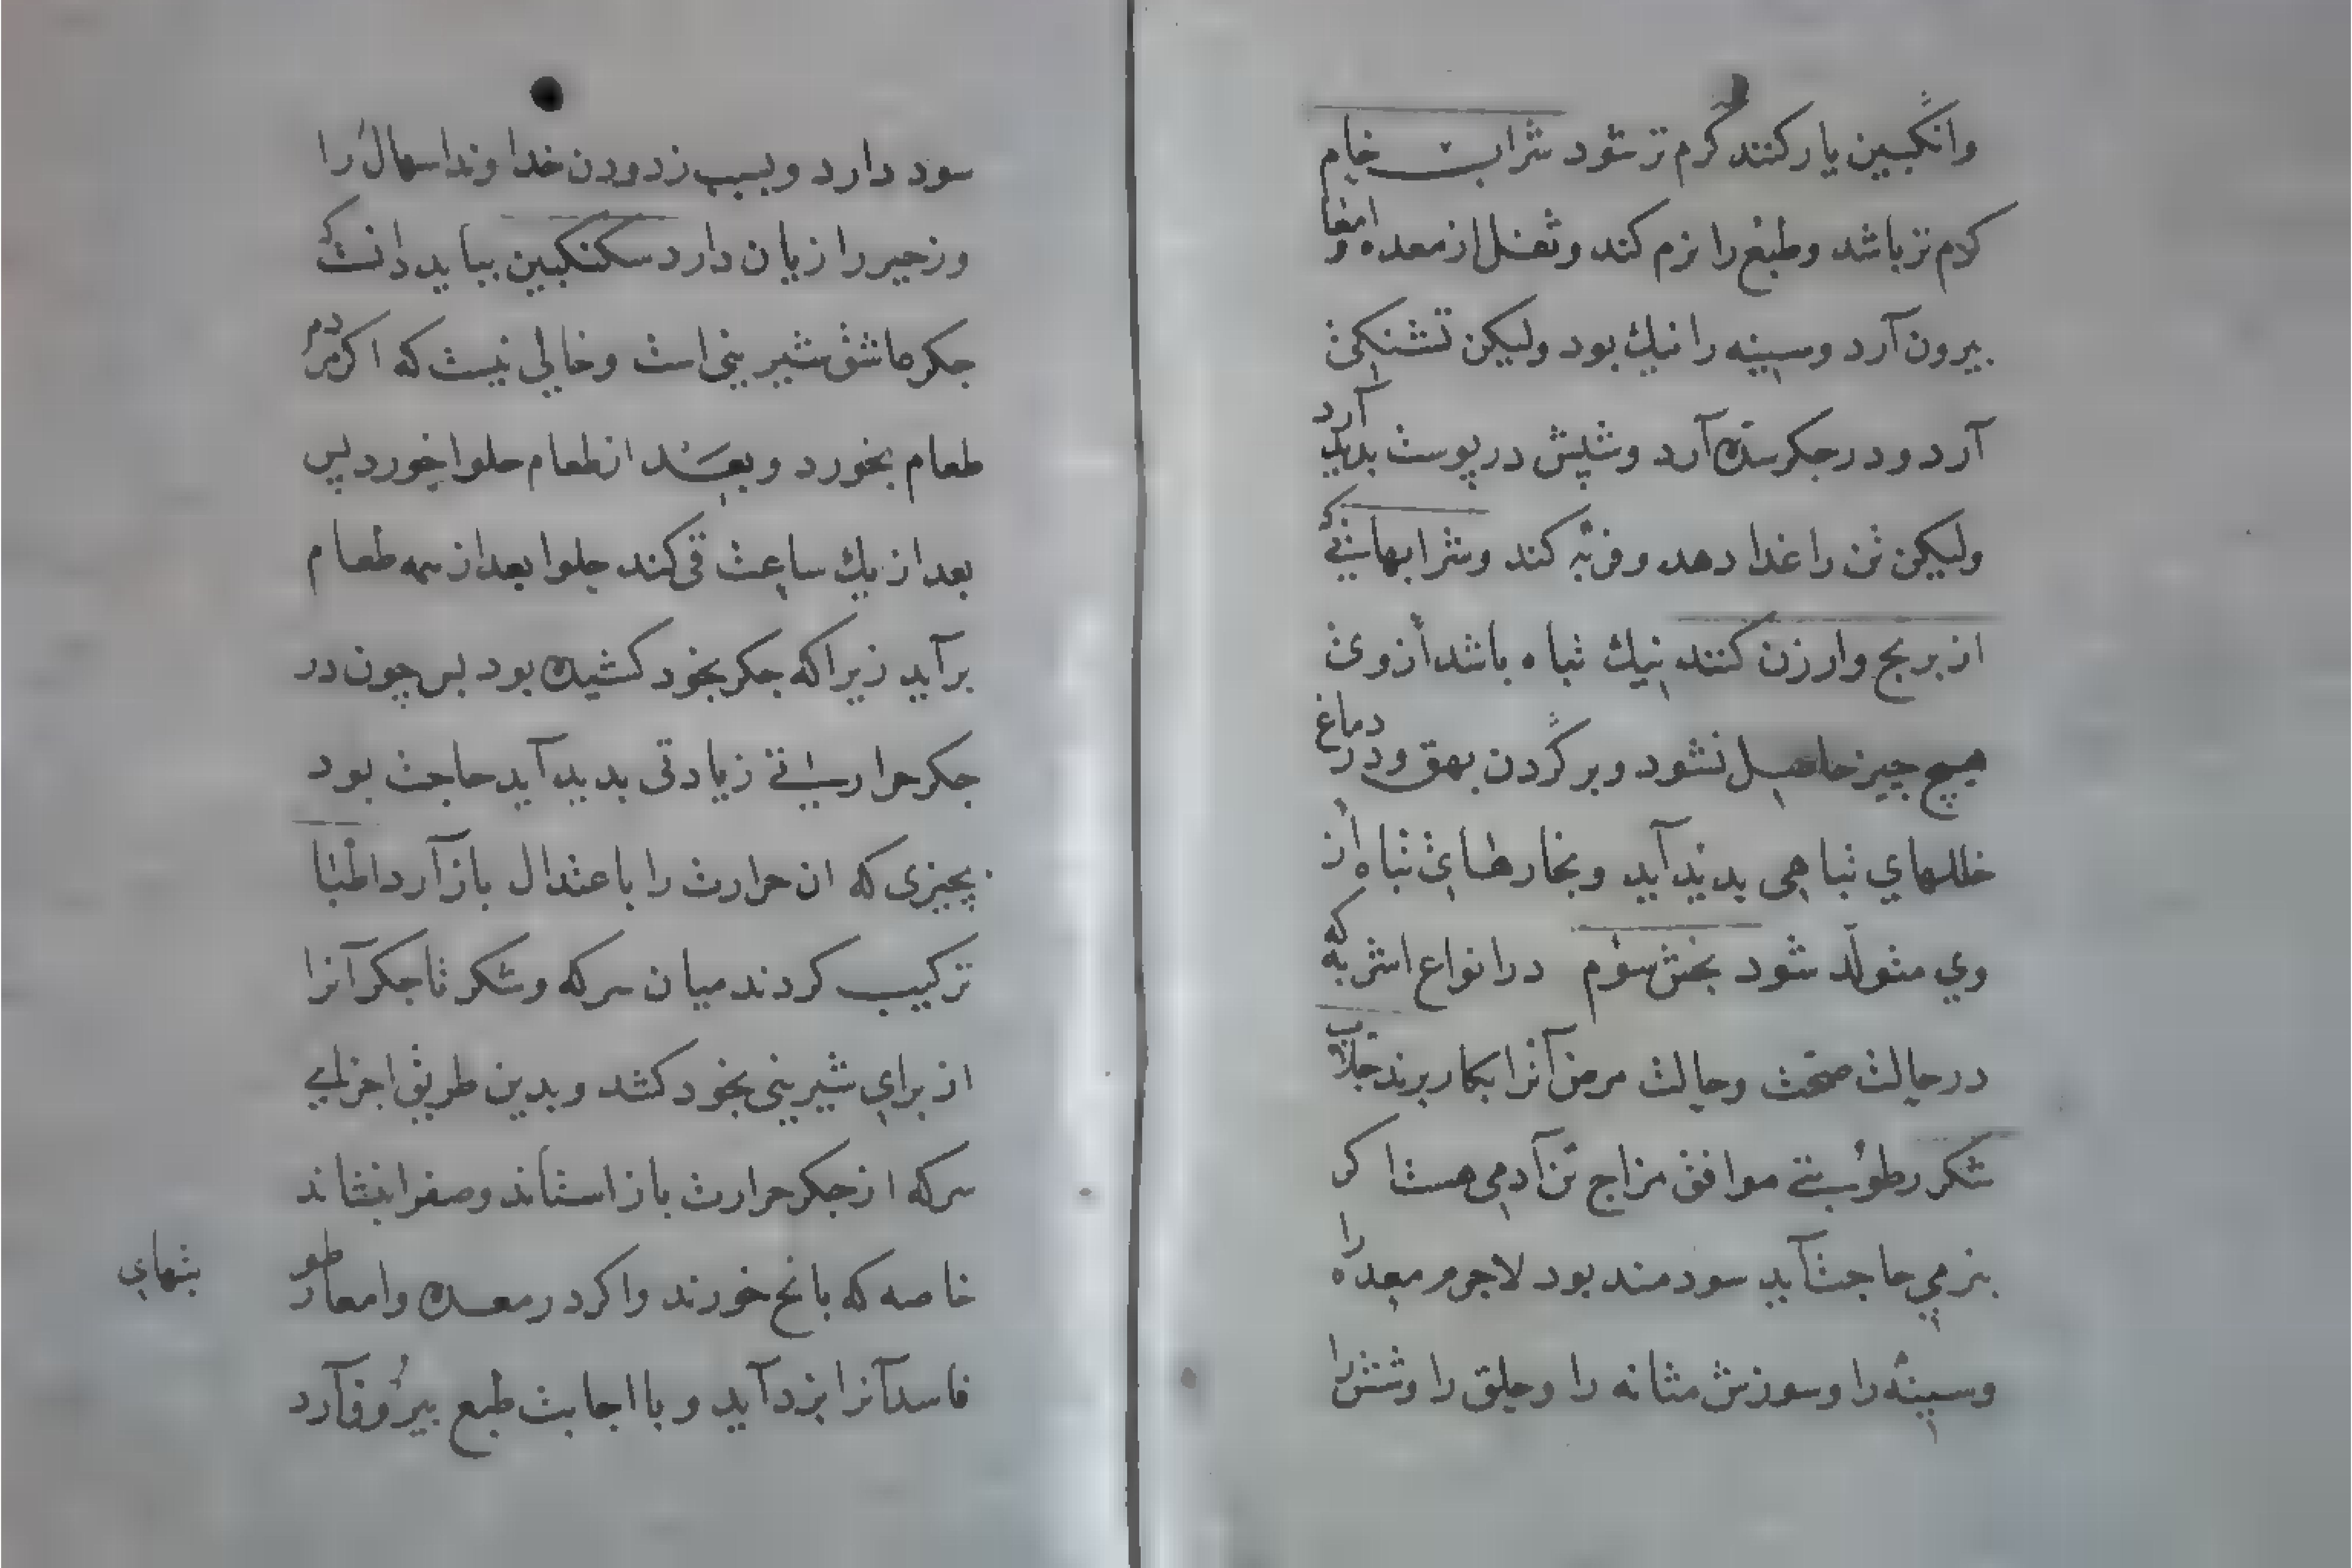 وانگبین یار کنند گرم تر شود شراب خام
کرم تر باشد وطبع را نرم کند وثفل از معده و امعا
بیرون آرد وسینه را نیك بود ولیکن تشنکی
آرد ودر جکر سده آرد وشپش در پوست بدید آرد
ولیکن تن را غذا دهد وفربه کند وشرابهائی که
از برنج وارزن کنند نیك تباه باشد از وی
هیچ چیز حاصل نشود وبر گردن بهق ودر دماغ
خللهاي تباهی پدید آید وبخارهای تباه از
وي متولد شود بخش سوم در انواع اشربه که
در حالت صحت وحالت مرض آنرا بکار برند جلاب
شکر رطوبتی موافق مزاج تن آدمی هست اکر
بنرمي حاجت آید سودمند بود لاجرم معده را
وسینه را وسوزش مثانه را وحلق را وشش را
سود دارد وبسبب زدودن خداوند اسهال را
وزحیر را زیان دارد سکنکبین بباید دانست که
جکر عاشق شیرینی است وخالي نیست که اکر مردم
طعام بخورد وبعد از طعام حلوا خورد پس
بعد از یك ساعت قی کند حلوا بعد از همه طعام
برآید زیرا که جکر بخود کشیده بود پس چون در
جکر حرارتی زیادتی بدید آید حاجت بود
بچیزی که ان حرارت را باعتدال باز آرد اطبا
ترکیب کردند میان سرکه وشکر تا جکر آنرا
از براي شیرینی بخود کشد وبدین طریق اجزای
سرکه از جکر حرارت باز استاند وصفرا بنشاند
خاصه که با نخ خورند واکر در معده وامعا رطو
بتهاي
فاسد آنرا بزداید وبا اجابت طبع بیرون آرد